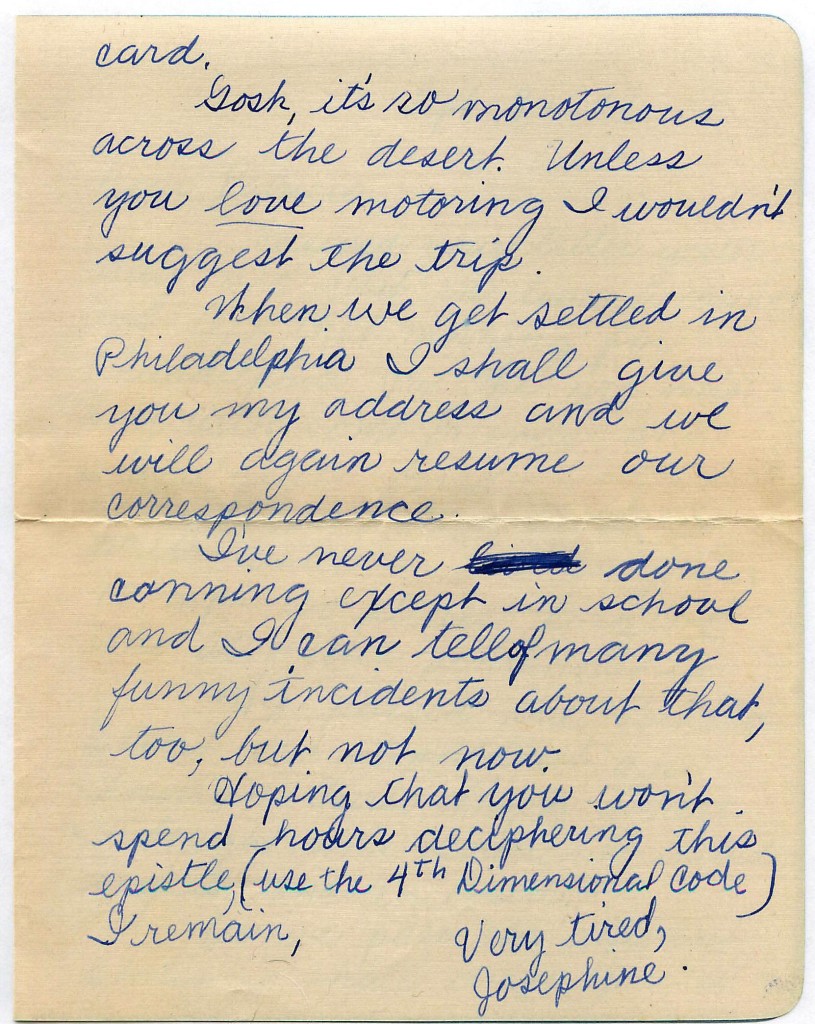 card.
Gosh, it's so monotonous
across the desert. Unless
you love motoring I wouldn't
suggest the trip.
When we get settled in
Philadelphia I shall give
you my address and we
will again resume our
correspondence.
I've never done
canning except in school
and I can tell of many
funny incidents about that,
too, but not now.
Hoping that you won't
spend hours deciphering this
epistle, (use the 4th Dimensional Code)
I remain,
Very tired,
Josephine.